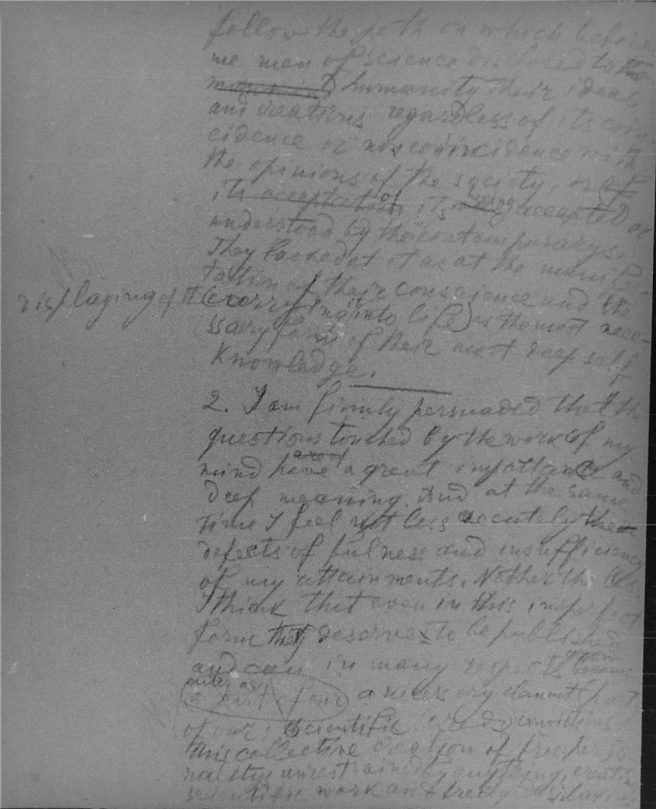 follow the path on which before
me men of science disclosed to the
humanity their ideas
and creations regardless of its coin-
cidence or noncoincidence with
the opinions of the society, or of
its acceptation, its being accepted or
understood by the contemporarys.
They looked at it as at the manifes-
tation of their conscience and the
displaying of it (carrying it into life) as the most nece-
ssary form of their most deep self
Knowledge.
2. I am firmly persuaded that the
questions touched by the work of my
mind have a great importance and
deep meaning. And at the same
time I feel not less acutely the
defects of fulness and insufficiency
of my attainments. Nether the less
I think that even in this imperfect
form they deserve to be published
and can in many respects become
enter as
a part of our a necessary element (part
of our scientific credo) convictions
this collective creation of free perso-
nality unrestrained by anything, creating
scientific work and freely